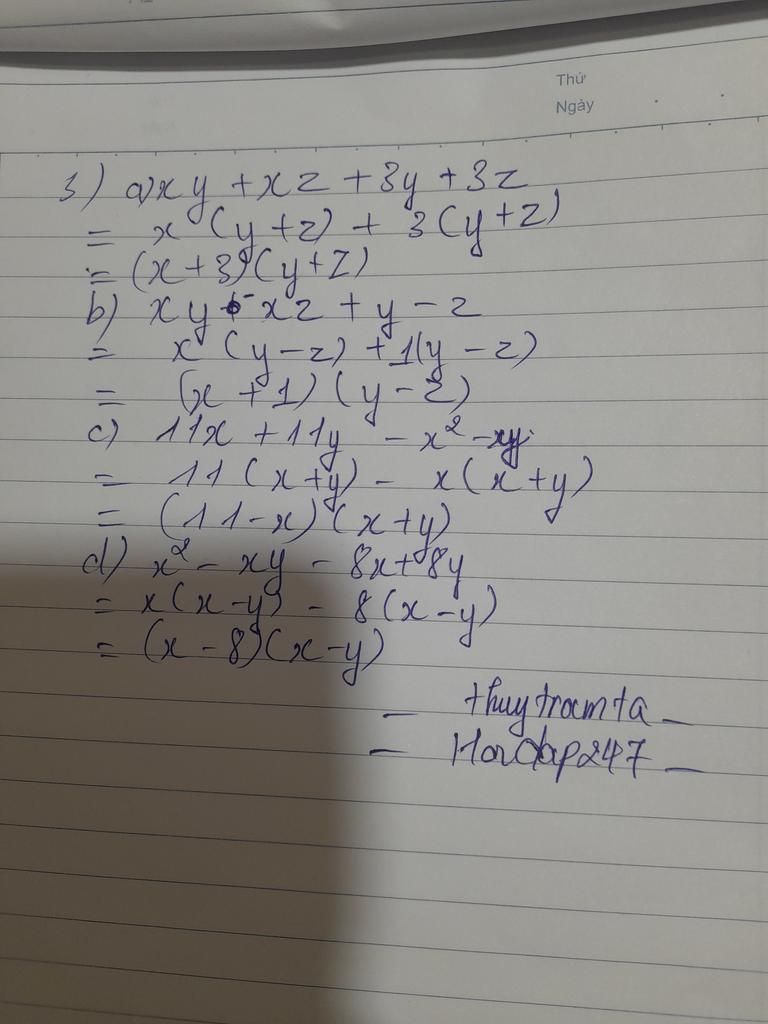 Thứ
Ngày
3) a) xy + xz + 3y + 3z
= x (y+z) + 3(y+z)
= (x+3)(y+z)
b) xy - xz + y - z
= x (y-z) + 1(y-z)
= (x+1) (y-z)
c) 11x + 11y - x² - xy
= 11 (x+y) - x(x+y)
= (11-x)(x+y)
d) x² - xy - 8x + 8y
= x(x-y) - 8(x-y)
= (x-8)(x-y)
- thuytramta -
- Hoidap247 -